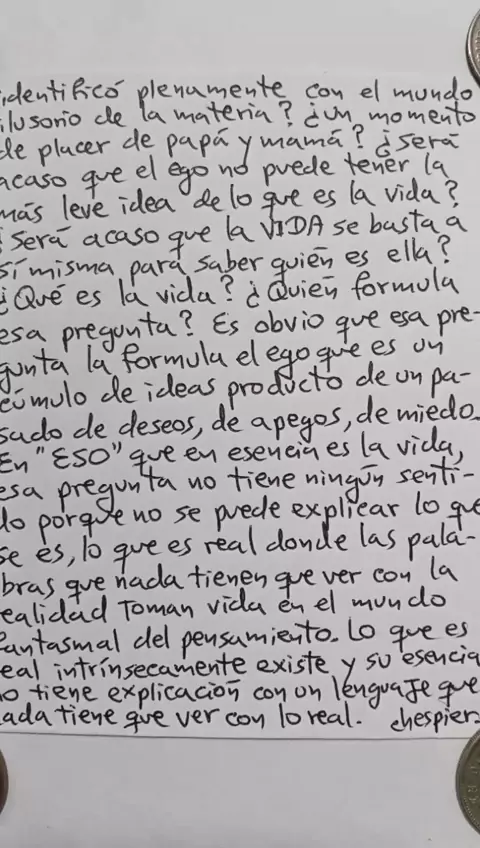 identificó plenamente con el mundo
ilusorio de la materia? ¿Un momento
de placer de papá y mamá? ¿será
acaso que el ego no puede tener la
más leve idea de lo que es la vida?
¿Será acaso que la VIDA se basta a
sí misma para saber quién es ella?
¿Qué es la vida? ¿Quién formula
esa pregunta? Es obvio que esa pre-
gunta la formula el ego que es un
cúmulo de ideas producto de un pa-
sado de deseos, de apegos, de miedo.
En "ESO" que en esencia es la vida,
esa pregunta no tiene ningún senti-
do porque no se puede explicar lo que
se es, lo que es real donde las pala-
bras que nada tienen que ver con la
ealidad toman vida en el mundo
fantasmal del pensamiento. Lo que es
eal intrínsecamente existe y su esencia
no tiene explicación con un lenguaje que
nada tiene que ver con lo real. chespier